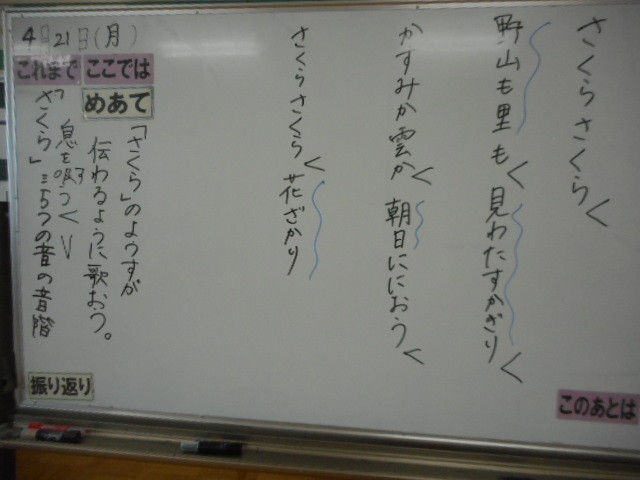 さくらさくら
野山も里も 見わたすかぎり
かすみか雲か 朝日ににおう
さくらさくら 花ざかり
4月21日(月)
これまで
ここでは
めあて
「さくら」のようすが
伝わるように歌おう。
息を吸う
「さくら」…5つの音の音階
振り返り
このあとは